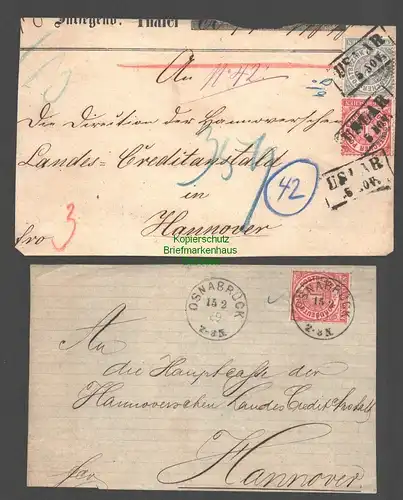 Inliegend. Thaler
USLAR
5 NOV.
An No 42.
USLAR
5 NOV.
Die Direction der Hannoverschen
Landes-Creditanstalt
USLAR
5 NOV.
in
42
Hannover
fro
3
Kopierschutz
Briefmarkenhaus
OSNABRÜCK
15 2
69
2-3N.
OSNABRÜCK
15 2
2-3N.
An
die Hauptcasse der
Hannoverschen Landes Credit Anstalt
Hannover.